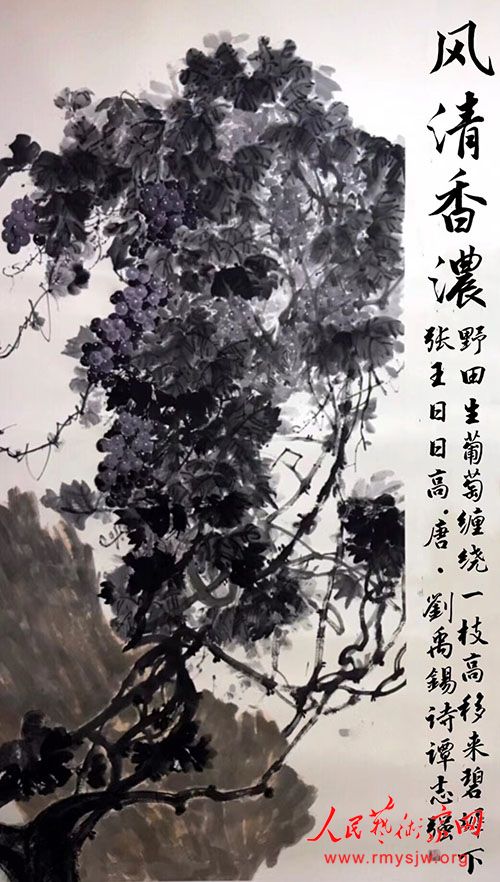 风清香濃
野田生葡萄缠绕一枝高移来碧下
张王日日高.唐.劉禹錫诗谭志强
人民藝術家网
www.rmysjw.org